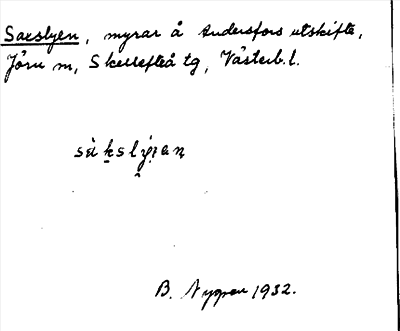 Saxslyen, myrar å Andersfors utskifte,
Jörn m, Skellefteå tg, Västerb. l.
B. Nygren 1932.